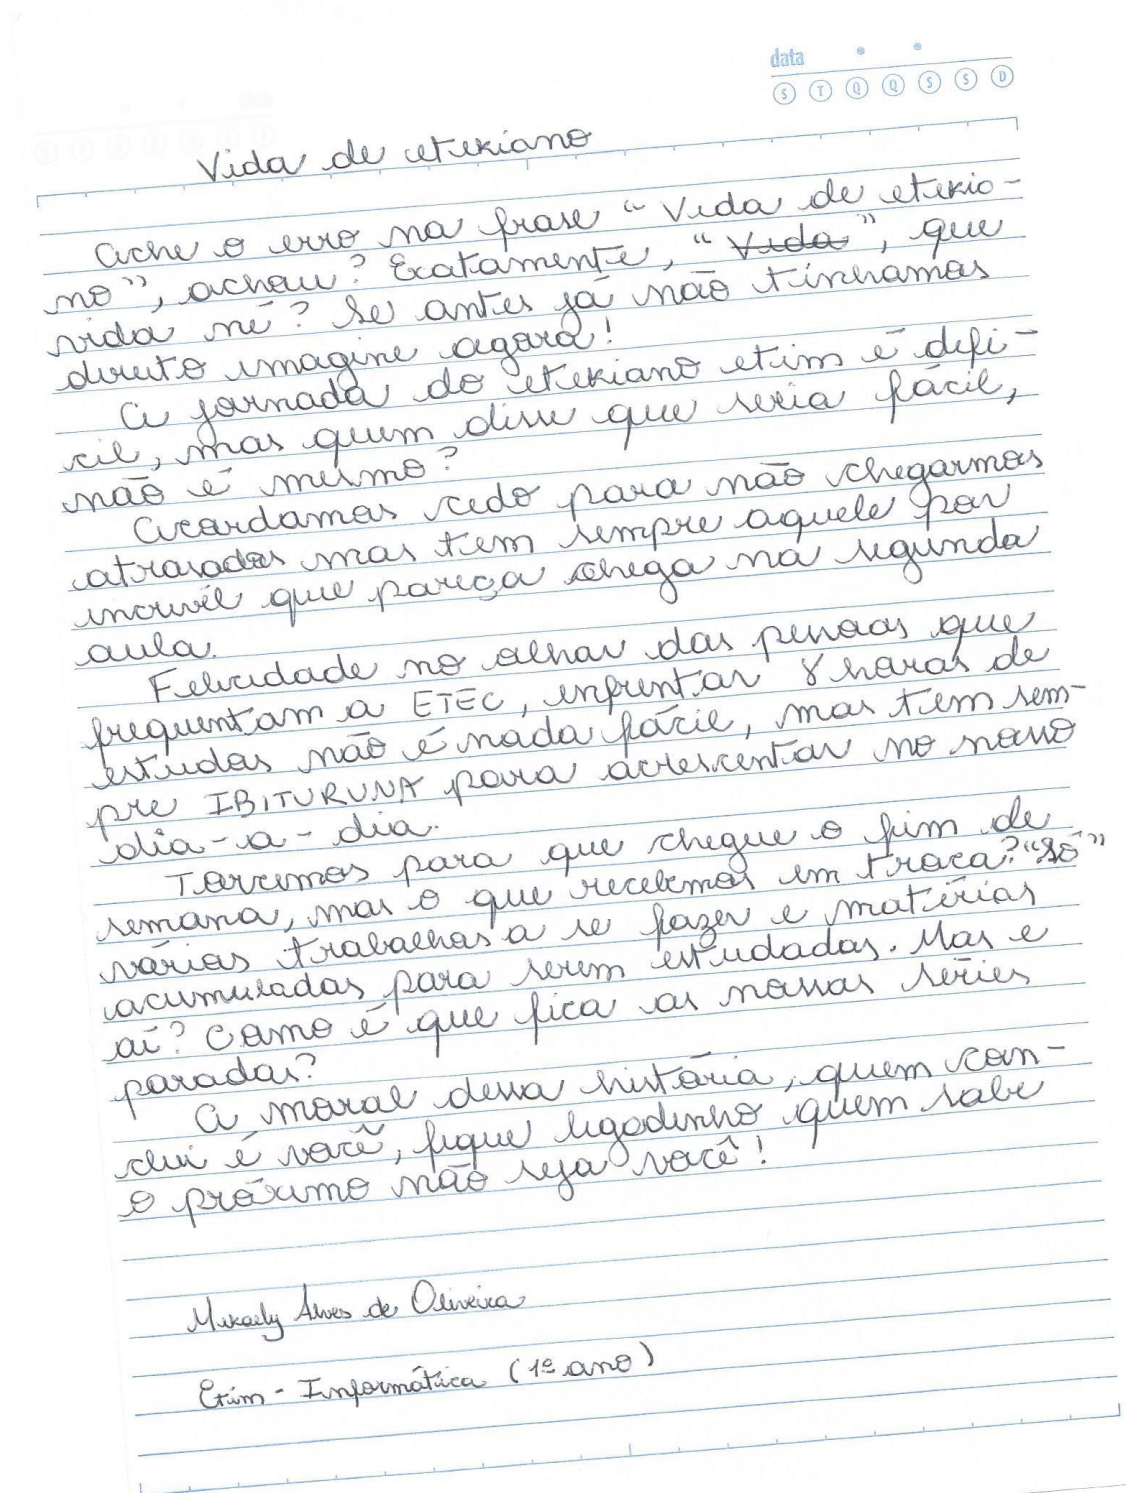 data
S T Q Q S S D
Vida de etekiano
Ache o erro na frase “Vida de etekia-
no”, achou? Exatamente, “Vida”, que
vida né? Se antes já não tínhamos
direito imagine agora!
A jornada do etekiano etim é difí-
cil, mas quem disse que seria fácil,
não é mesmo?
Acordamos cedo para não chegarmos
atrasados mas tem sempre aquele por
incrivél que pareça chega na segunda
aula.
Felicidade no olhar das pessoas que
frequentam a ETEC, enfrentar 8 horas de
estudos não é nada fácil, mas tem sem-
pre IBITURUNA para acrescentar no nosso
dia-a-dia.
Torcemos para que chegue o fim de
semana, mas o que recebemos em troca? “Só”
várias trabalhos a se fazer e matérias
acumuladas para serem estudadas. Mas e
aí? Como é que fica as nossas séries
paradas?
A moral dessa história, quem con-
clui é você, fique ligadinho quem sabe
o próximo não seja você!
Mikaely Alves de Oliveira
Etim - Informática (1º ano)